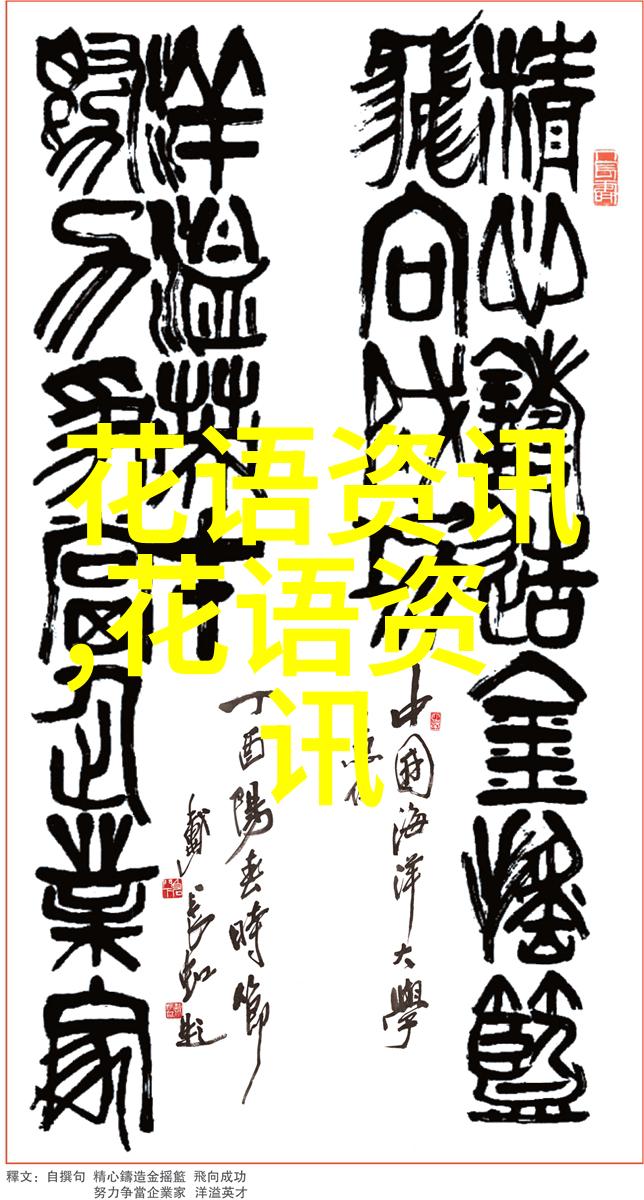 精心鑄造金摇籃
飛向成功
中國海洋大學
洋溢英才
丁酉陽春時節
努力争當企業家
戴長虹題
花语资讯
,花语资
讯
釋文：自撰句 精心鑄造金摇籃 飛向成功
努力争當企業家 洋溢英才